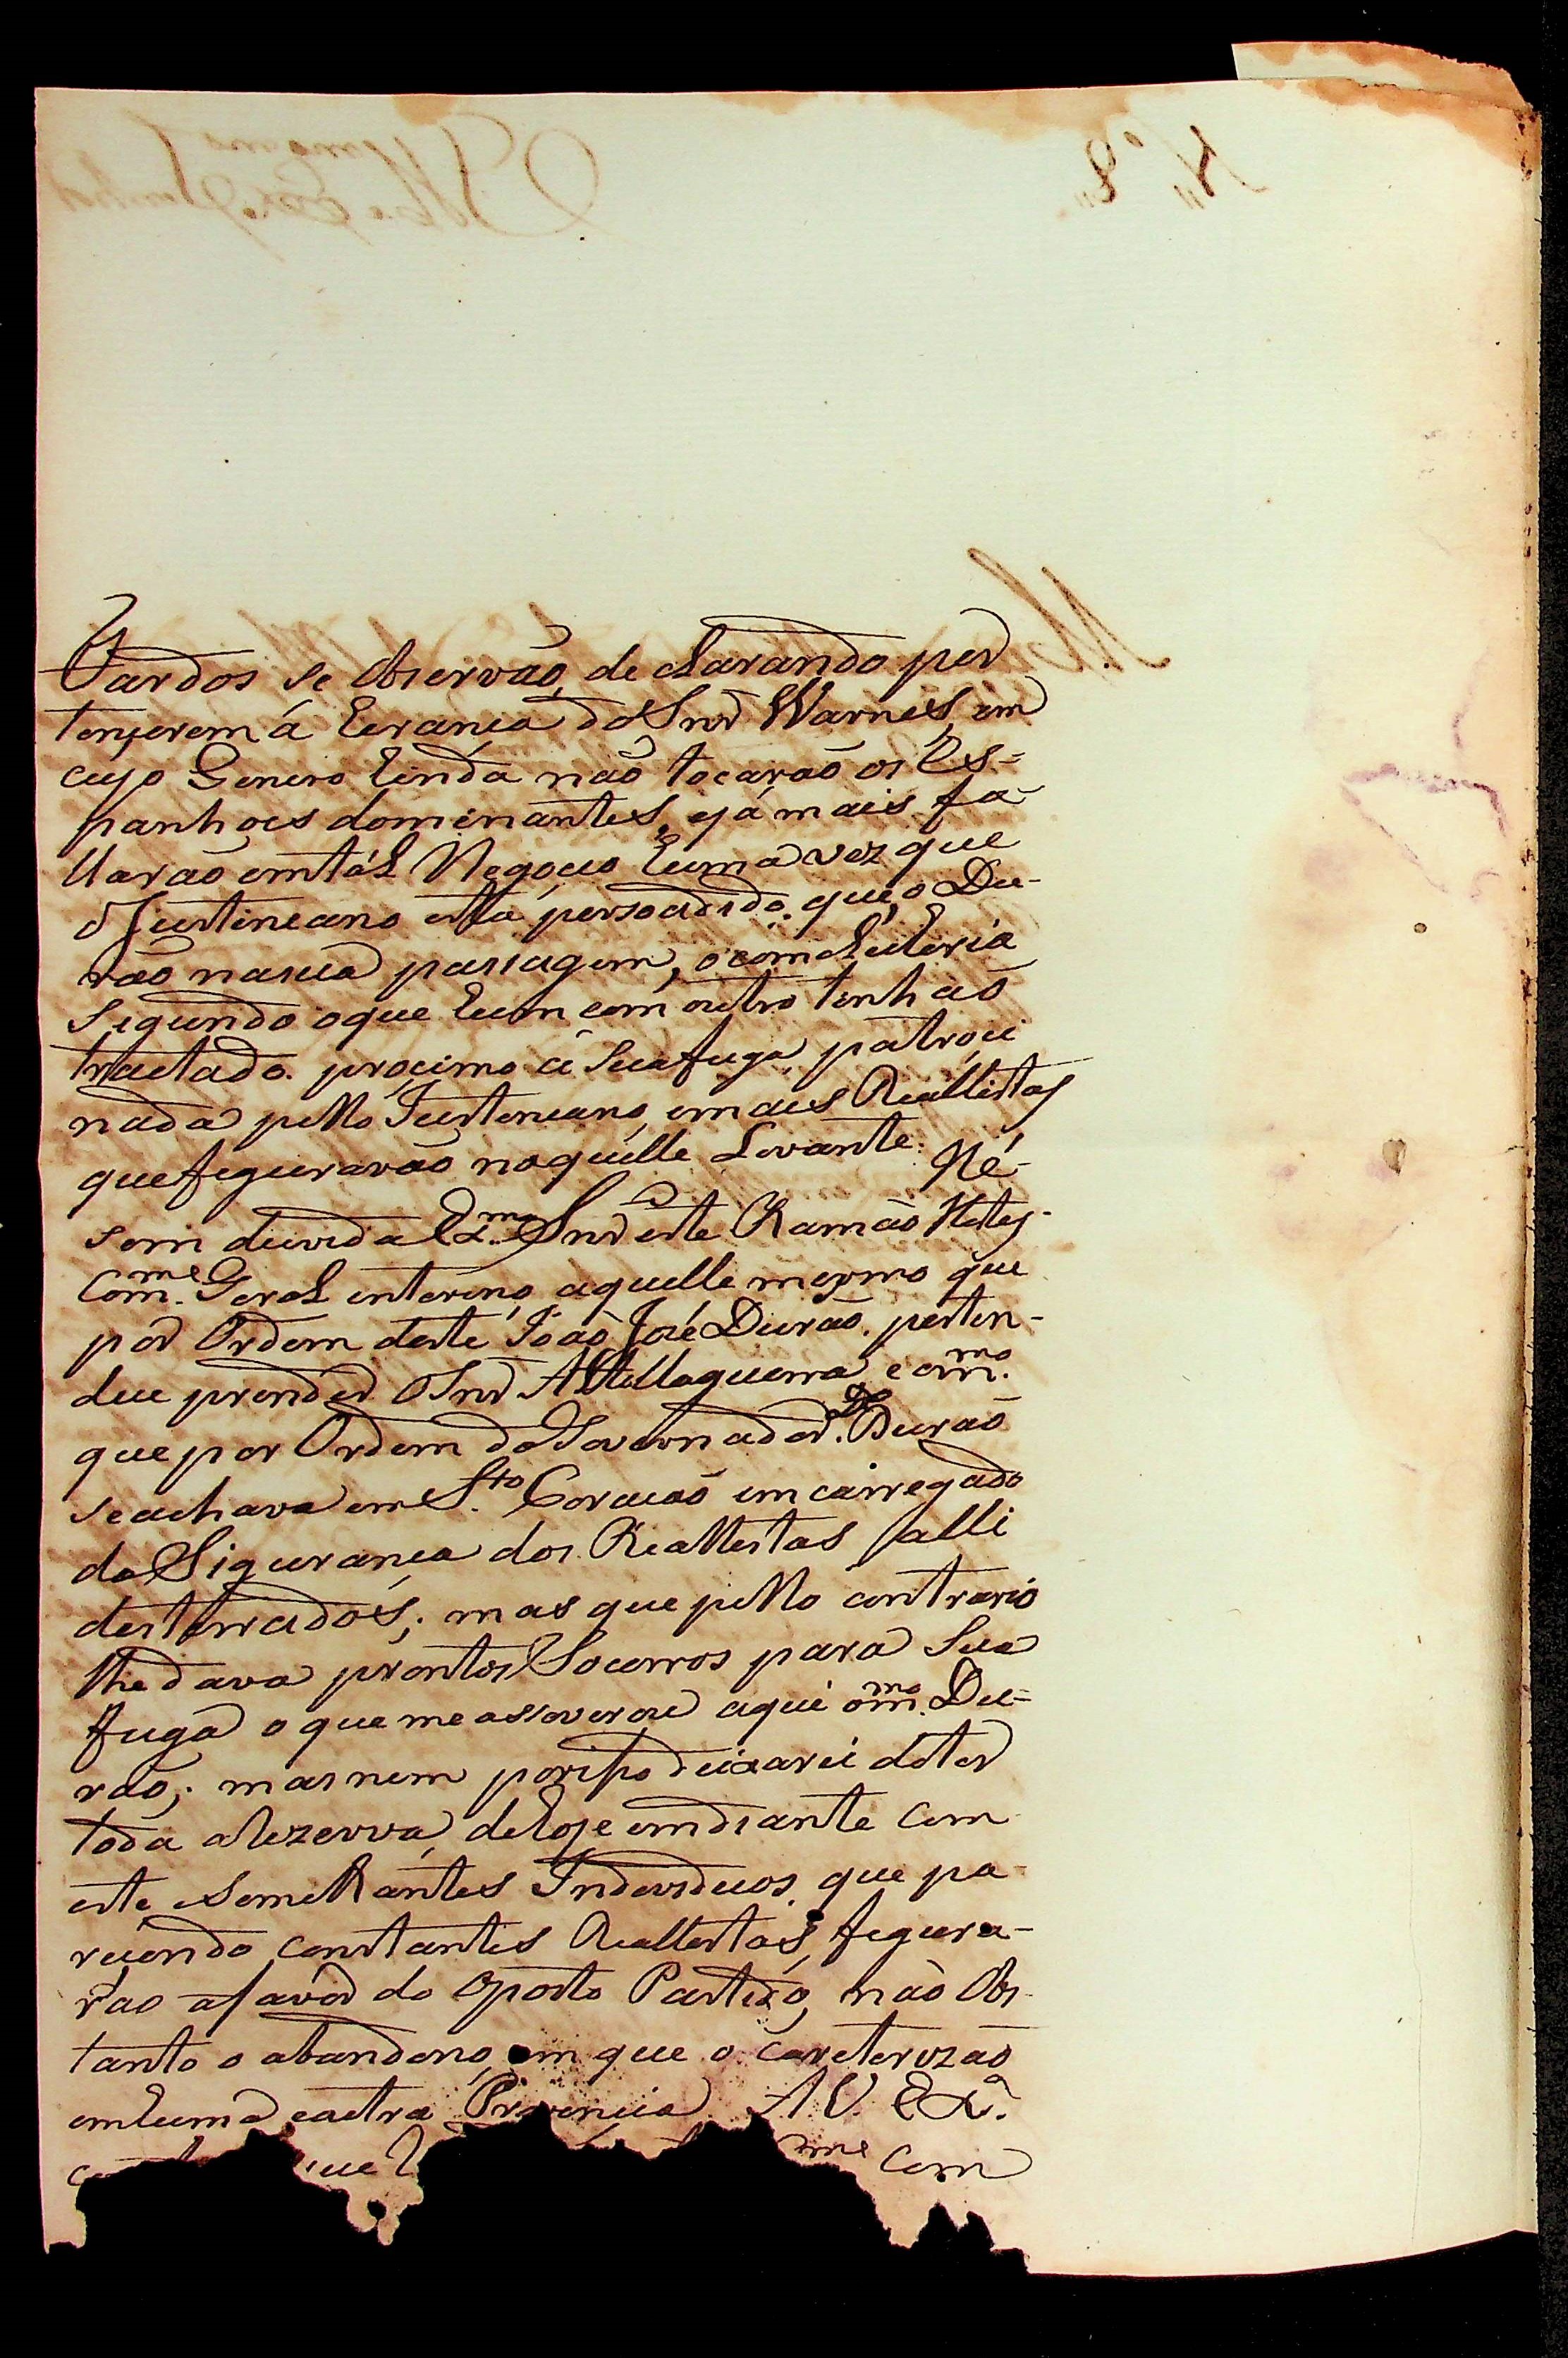 Pardos se observão, declarando per
tençerem á Erança do Snr Warnes, em
cujo Genero Einda não tocarão os Es=
panhoes dominantes, e já mais fa-
llarão em tál Negocio huma vez que
o Justineano está persoadido, que, o Du-
rão na sua passagem, o comcluteria
segundo o que hum com outro tenhão
tractado. procimo á Sua fuga patroci
nada pello Justeneano, em aes Reallistas
que feguravão naquelle Levante. Hé-
sem duvida Ex.mo Snr este Ramão
Com.me Geral enterino, aquelle mesmo que
por Ordem deste João José Durão, perten-
deu prender o Snr Altollaguerra e om.mo
que por Ordem do Governador. De Durão
se achava em S.to Coracão emcarregado
da Sigurança dos Reallestas alli
desterrados; mas que pello contrario
lhe dava prontos Socorros para Sua
fuga o que me asseverou aqui o m.mo Du=
rão; mas nem por isso deixarei de ter
toda a Rezerva, de hoje em diante com
este e Semelhantes Individuos, que pa-
recendo constantes Reallestas, fegura-
rão a favor do oposto Partido, não Obs-
tante o abandono, em que o careterizão
em huma e outra Provencia. A V. Exa.
me com